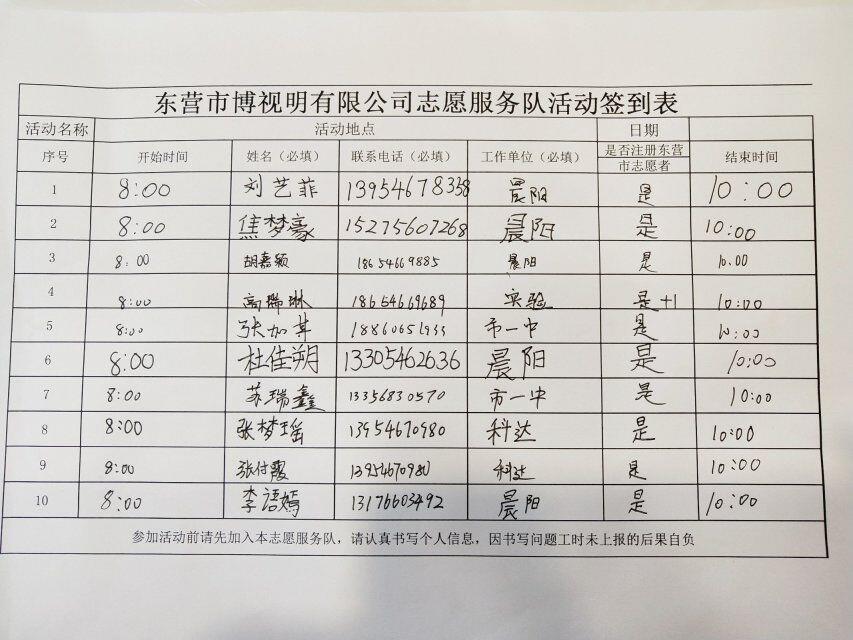 东营市博视明有限公司志愿服务队活动签到表
活动名称 活动地点 日期
序号 开始时间 姓名（必填） 联系电话（必填） 工作单位（必填） 是否注册东营市志愿者 结束时间
1 8:00 刘艺菲 13954678338 晨阳 是 10:00
2 8:00 焦梦豪 15275607268 晨阳 是 10:00
3 8:00 胡嘉颖 18654669885 晨阳 是 10.00
4 8:00 高瑞琳 18654669689 实验 是+1 10:00
5 8:00 张加苹 18860651933 市一中 是 10:00
6 8:00 杜佳朔 13305462636 晨阳 是 10:00
7 8:00 苏瑞鑫 13356830570 市一中 是 10:00
8 8:00 张梦瑶 13954670980 科达 是 10:00
9 8:00 张付霞 13954670980 科达 是 10:00
10 8:00 李语嫣 13176603492 晨阳 是 10:00
参加活动前请先加入本志愿服务队，请认真书写个人信息，因书写问题工时未上报的后果自负